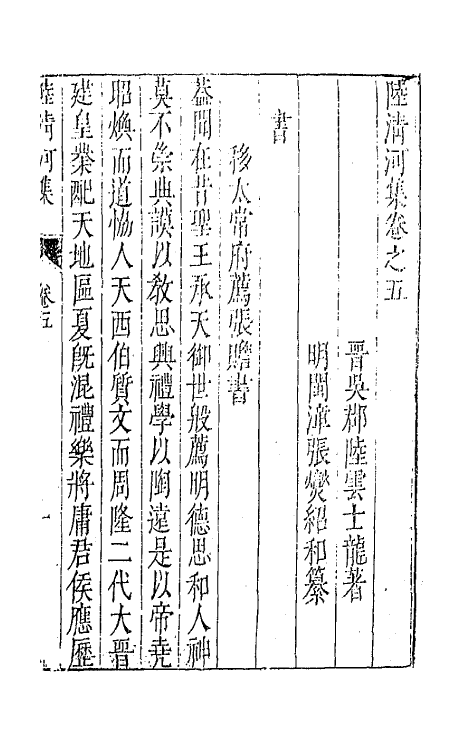 陸清河集卷之五
晋吳郡陸雲士龍著
明閩漳張燮紹和纂
書
移太常府薦張贍書
蓋聞在昔聖王承天御世殷薦明德思和人神
莫不崇典謨以敎思興禮學以陶遠是以帝堯
昭煥而道恊人天西伯質文而周隆二代大晋
建皇業配天地區夏旣混禮樂將庸君侯應歷
陸清河集
卷五
一